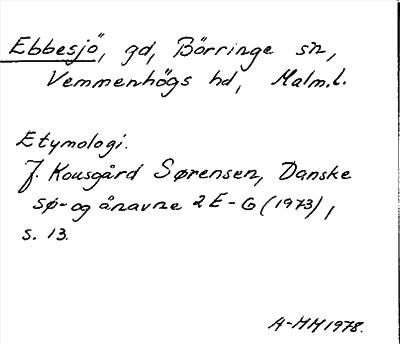 Ebbesjö, gd, Börringe sn,
Vemmenhögs hd, Malm.l.
Etymologi.
J. Kousgård Sørensen, Danske
sø- og ånavne 2 E-G (1973),
s. 13.
A-MH 1978.